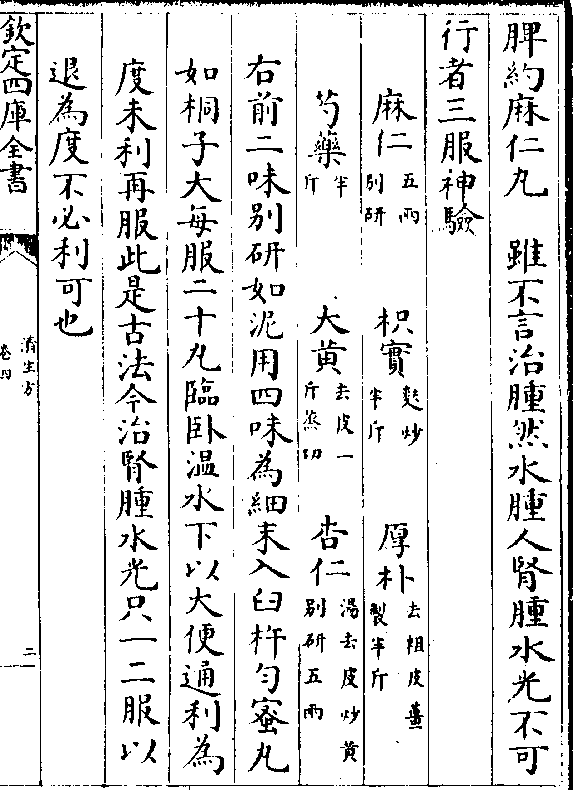 脾約麻仁丸　雖不言治腫然水腫人腎腫水光不可
行者三服神驗
麻仁五兩別研　枳實麩炒半斤　厚朴去粗皮薑製半斤
芍藥半斤　大黄去皮一斤蒸切　杏仁湯去皮炒黄別研五兩
右前二味别研如泥用四味為細末入臼杵勻蜜丸
如桐子大每服二十丸臨卧温水下以大便通利為
度未利再服此是古法今治腎腫水光只一二服以
退為度不必利可也
欽定四庫全書
濟生方
卷四
二